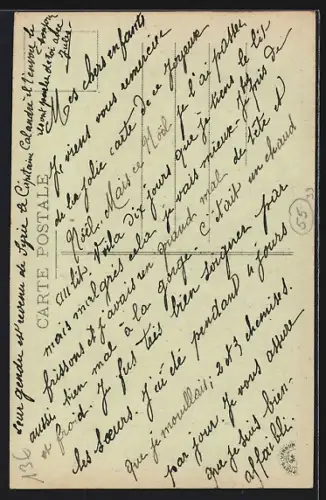 Mes chers enfants
Je viens vous remercier
de la jolie carte de ce Joyeux
Noël. Mais ce Noël je l'ai passé
au lit. Voila dix jours que je tiens le lit
mais malgrès cela je vais mieux. J'ai
frissons et j'avais un grand mal de tête et
aussi bien mal à la gorge c'était un chaud
et froid. Je fus très bien soignée par
les Sœurs. J'ai été pendant 4 jours
que je mouillais; 2 et 3 chemises.
par jour. Je vous assure
que je suis bien
affaibli.
Leur gendre est revenu de Syrie le Capitaine Calandre il l'emmène
Jules
CARTE POSTALE
136
55
33